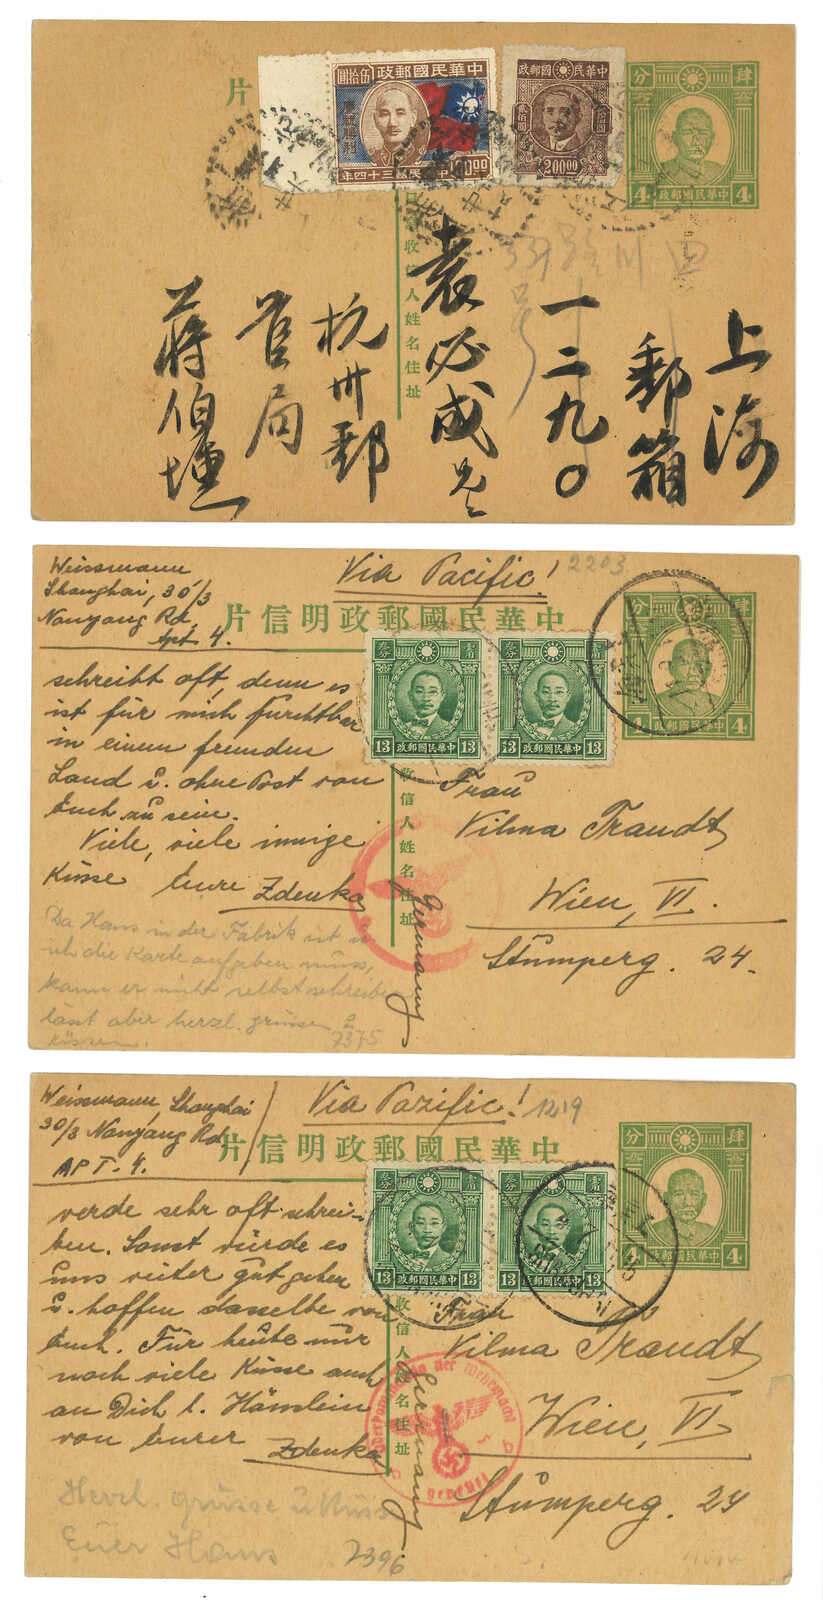 片
中華民國郵政
伍拾圓
00.00
中華民國三十四年
中華民國郵政
200.00
肆分
4 中華民國郵政 4
收信人姓名住址
四川路
號
上海
郵箱
一二九〇
袁必成先生
杭州郵
局
蔣伯壎
Weissmann
Shanghai, 30/3
Nanyang Rd,
Apt 4.
Via Pacific!
2203
片信明政郵國民華中
schreibt oft, denn es
ist für mich furchtbar
in einem fremden
Land u. ohne Post von
Euch zu sein.
Viele, viele innige
Küsse Eure Zdenka
Da Hans in der Fabrik ist u.
ich die Karte aufgeben muss,
kann er nicht selbst schreiben
lässt aber herzl. grüssen u.
küssen.
7375
13 中華民國郵政 13
13 中華民國郵政 13
肆分
4 中華民國郵政 4
收信人姓名住址
Frau
Vilma Traudt
Wien, VI.
Stumperg. 24.
Germany
Weissmann, Shanghai
30/3 Nanyang Rd.
APT. 4.
Via Pazific!
1219
片信明政郵國民華中
werde sehr oft schrei-
ben. Sonst würde es
uns weiter gut gehen
u. hoffen dasselbe von
Euch. Für heute nur
noch viele Küsse auch
an Dich l. Hänslein
von Eurer Zdenka
Herzl. Grüsse u. Küsse
Euer Hans
7396
13 中華民國郵政 13
13 中華民國郵政 13
肆分
4 中華民國郵政 4
收信人姓名住址
Oberkommando der Wehrmacht
geprüft
Frau
Vilma Traudt
Wien, VI
Stumperg. 24
Germany